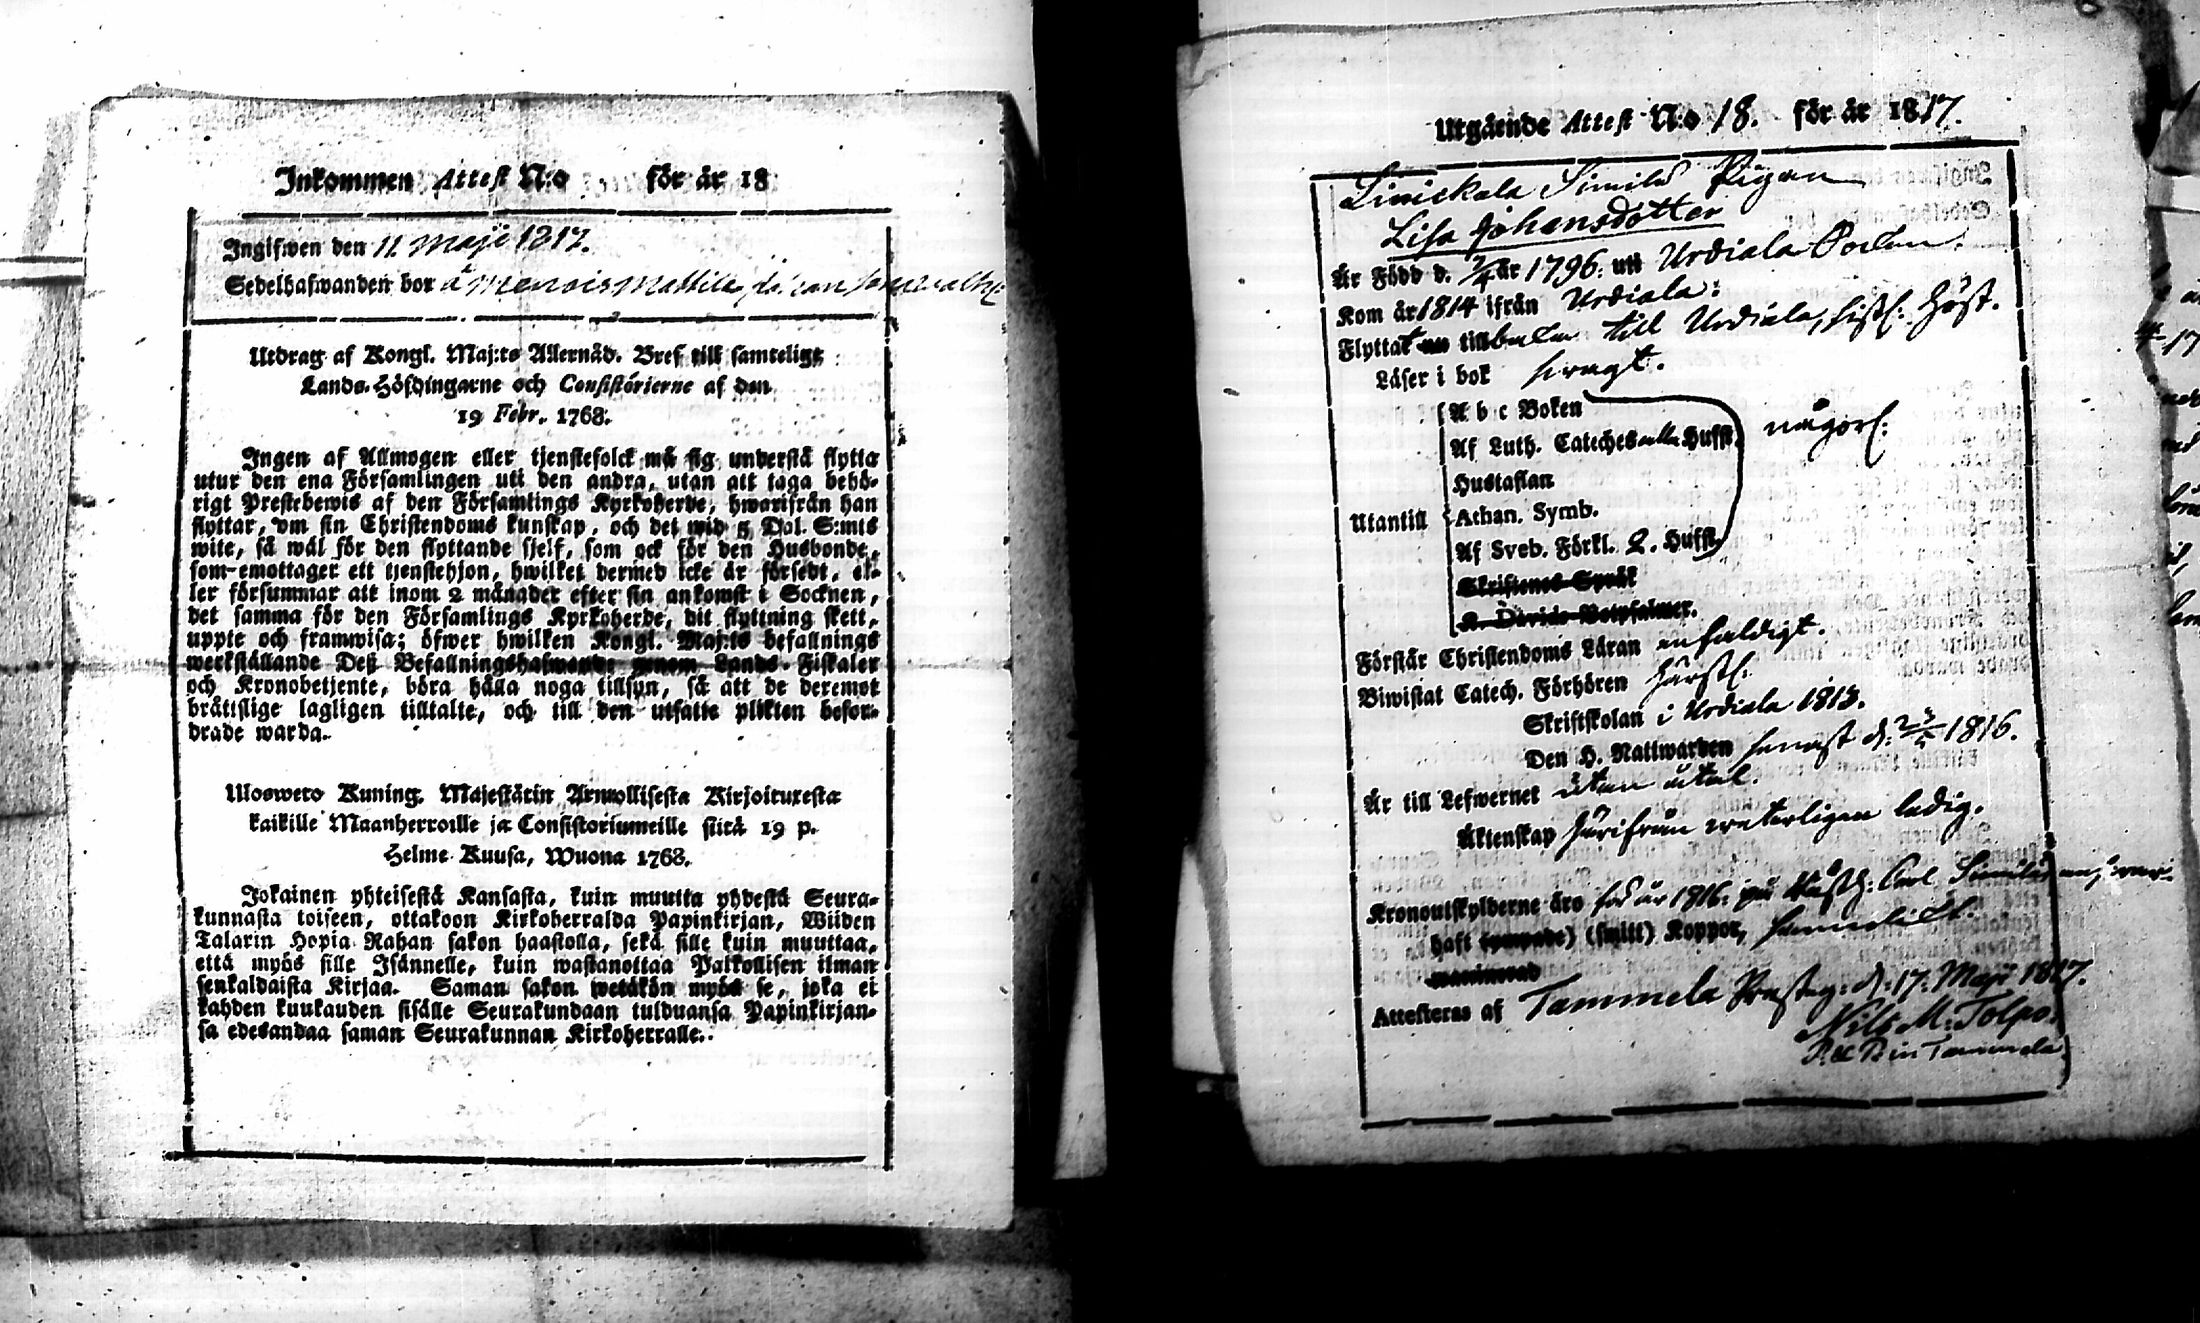 Inkommen Attest N:o för år 18
Ingifwen den 11. Maji 1817.
Sedelhafwanden bor å
Utdrag af Kongl. Maj:ts Allernåd. Bref till samtelige
Lands-Höfdingarne och Consistorierne af den
19 Febr. 1768.
Ingen af Allmogen eller tjenstefolck må sig understå flytta
utur den ena Församlingen uti den andra, utan att taga behö-
rigt Prestebewis af den Församlings Kyrkoherde, hwarifrån han
flyttar, om sin Christendoms kunskap, och det wid 5 Dal. S:mts
wite, så wäl för den flyttande sjelf, som ock för den Husbonde,
som emottager ett tjenstehjon, hwilket dermed icke är försedt, el-
ler försummar att inom 2 månader efter sin ankomst i Socknen,
det samma för den Församlings Kyrkoherde, dit flyttning skett,
uppte och framwisa; öfwer hwilken Kongl. Maj:ts befallnings
werkställande Deß Befallningshafwande genom Lands-Fiskaler
och Kronobetjente, böra hålla noga tillsyn, så att de deremot
bråttslige lagligen tilltalte, och till den utsatte plikten befor-
drade warda.
Uloswetо Kuning. Majestätin Armollisesta Kirjoituxesta
kaikille Maanherroille ja Consistoriumeille siitä 19 p.
Helme Kuusa, Wuona 1768.
Jokainen yhteisestä Kansasta, kuin muutta yhdestä Seura-
kunnasta toiseen, ottakoon Kirkoherralda Papinkirjan, Wiiden
Talarin Hopia Rahan sakon haastolla, sekä sille kuin muuttaa,
että myös sille Isännelle, kuin wastanottaa Palkollisen ilman
senkaldaista Kirjaa. Saman sakon wetäkön myös se, joka ei
kahden kuukauden sisälle Seurakundaan tulduansa Papinkirjan-
sa edesandaa saman Seurakunnan Kirkoherralle.
Utgående Attest N:o 18. för år 1817.
Simila Pigan
Lisa Johansdotter
År Född d. 7/4 år 1796. uti Urdiala Socken.
Kom år 1814 ifrån Urdiala:
Flyttat nu till till Urdiala, sistl. Höst.
Läser i bok swagt.
A b c Boken
Af Luth. Cateches alla Hufst. någorl:
Hustaflan
Utantill Athan. Symb.
Af Sveb. Förkl. 2. Hufst.
Skriftenes Språk
K. Davids Botpsalmer.
Förstår Christendoms Läran enfaldigt.
Biwistat Catech. Förhören
Skriftskolan i Urdiala 1813.
Den H. Nattwarden senast d: 1816.
År till Lefwernet utan åtal.
Äktenskap härifrån weterligen ledig.
Kronoutskylderne äro för år 1816. på Carl Simila
haft (ympade) (smitt) Koppor,
vaccinerad
Attesteras af Tammela Prästeg: d: 17. Maji 1817.
Nils M. Tolpo.
in Tammela